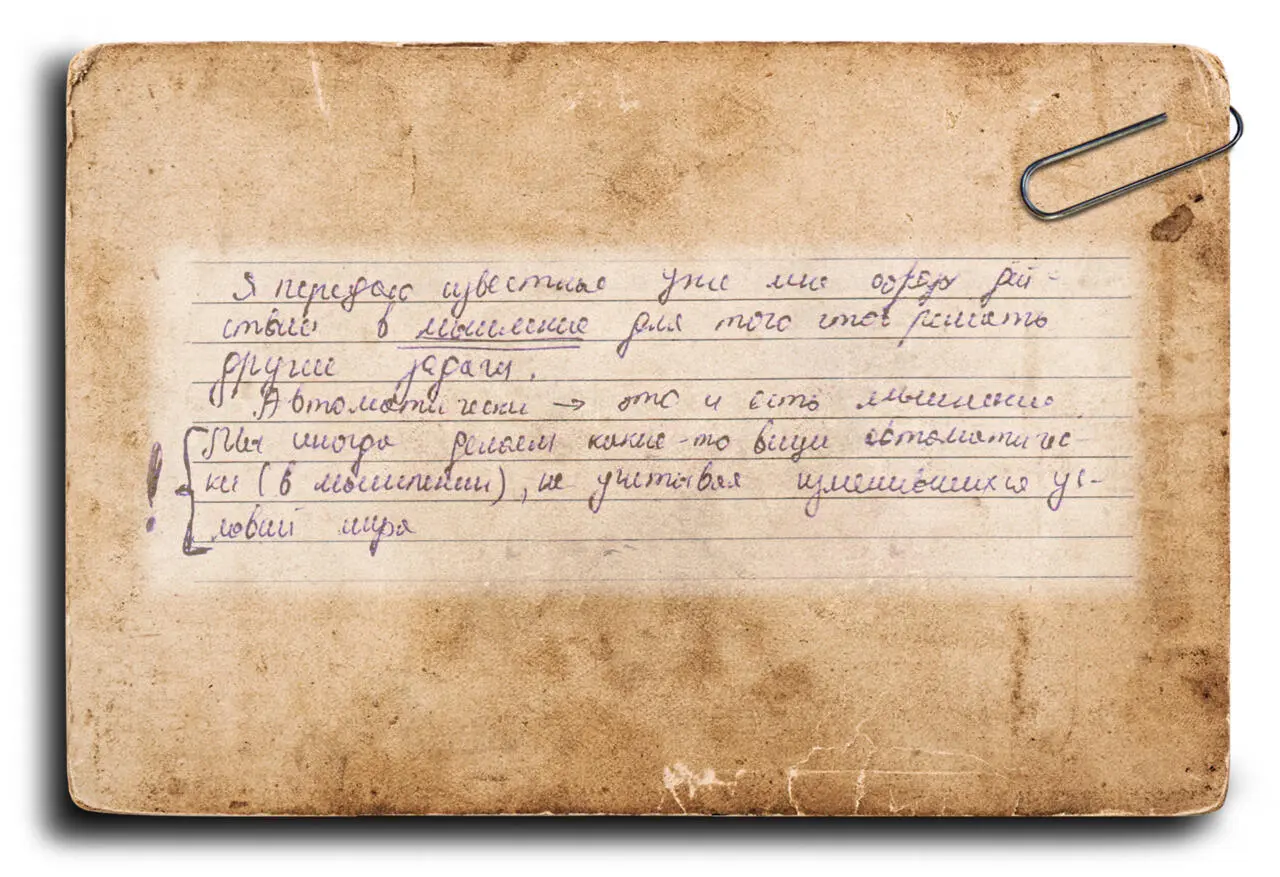 Я передаю известные уже мне образы дей-
ствий в мышление для того чтоб решать
другие задачи.
Автоматически → это и есть мышление
! Мы иногда делаем какие-то вещи автоматичес-
ки (в мышлении), не учитывая изменившихся ус-
ловий мира